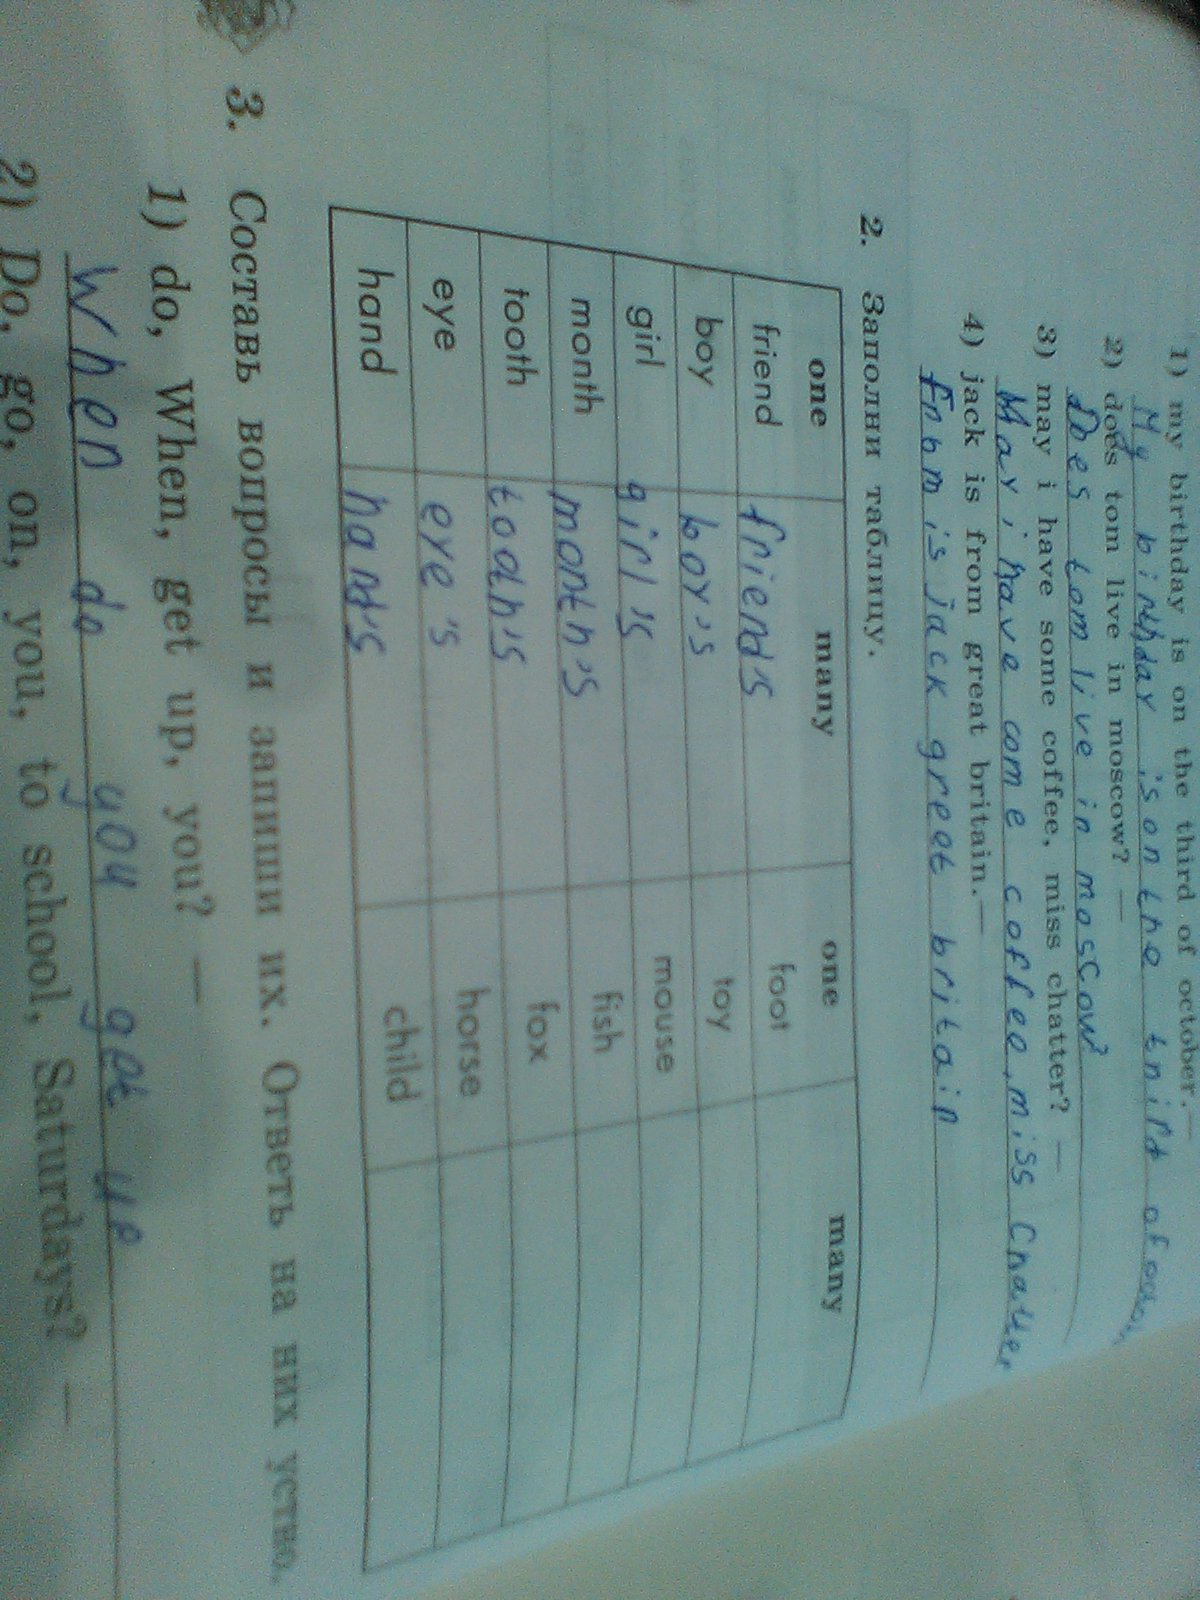 1) my birthday is on the third of october. —
My birthday is on the third of
2) does tom live in moscow? —
Does tom live in moscow?
3) may i have some coffee, miss chatter? —
May i have come coffee, miss Chatter
4) jack is from great britain. —
is jack great britain
2. Заполни таблицу.
one many one many
friend friend's foot
boy boy's toy
girl girl's mouse
month month's fish
tooth tooth's fox
eye eye's horse
hand hand's child
3. Составь вопросы и запиши их. Ответь на них устно.
1) do, When, get up, you? —
When do you get up
2) Do, go, on, you, to school, Saturdays? —